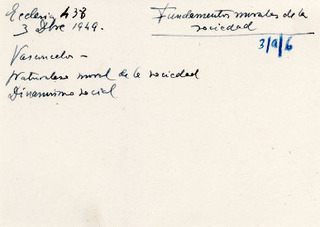 Ecclesia 438
3 Dbre 1949.
Fundamentos morales de la
sociedad
3/a/6
Vasconcelos -
Naturaleza moral de la sociedad
Dinamismo social